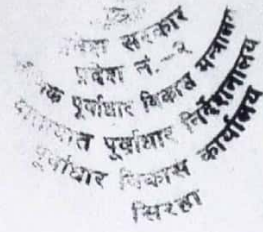 प्रदेश सरकार
प्रदेश नं.-२
पूर्वाधार विकास मन्त्रालय
यातायात पूर्वाधार निर्देशनालय
पूर्वाधार विकास कार्यालय
सिरहा